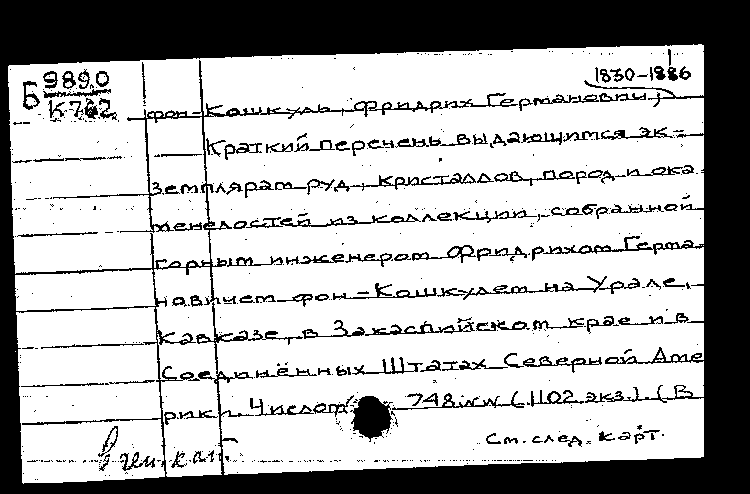 1830-1886
Б 9890
К-782
фон-Кошкуль, Фридрих Германович,
Краткий перечень выдающимся эк-
земплярам руд, кристаллов, пород и ока-
менелостей из коллекции, собранной
горным инженером Фридрихом Герма-
новичем фон-Кошкулем на Урале,
Кавказе, в Закаспийском крае и в
Соединённых Штатах Северной Аме
рики. Числом 748 №№ (1102 экз.). (В
См. след. карт.
В ген. кат.